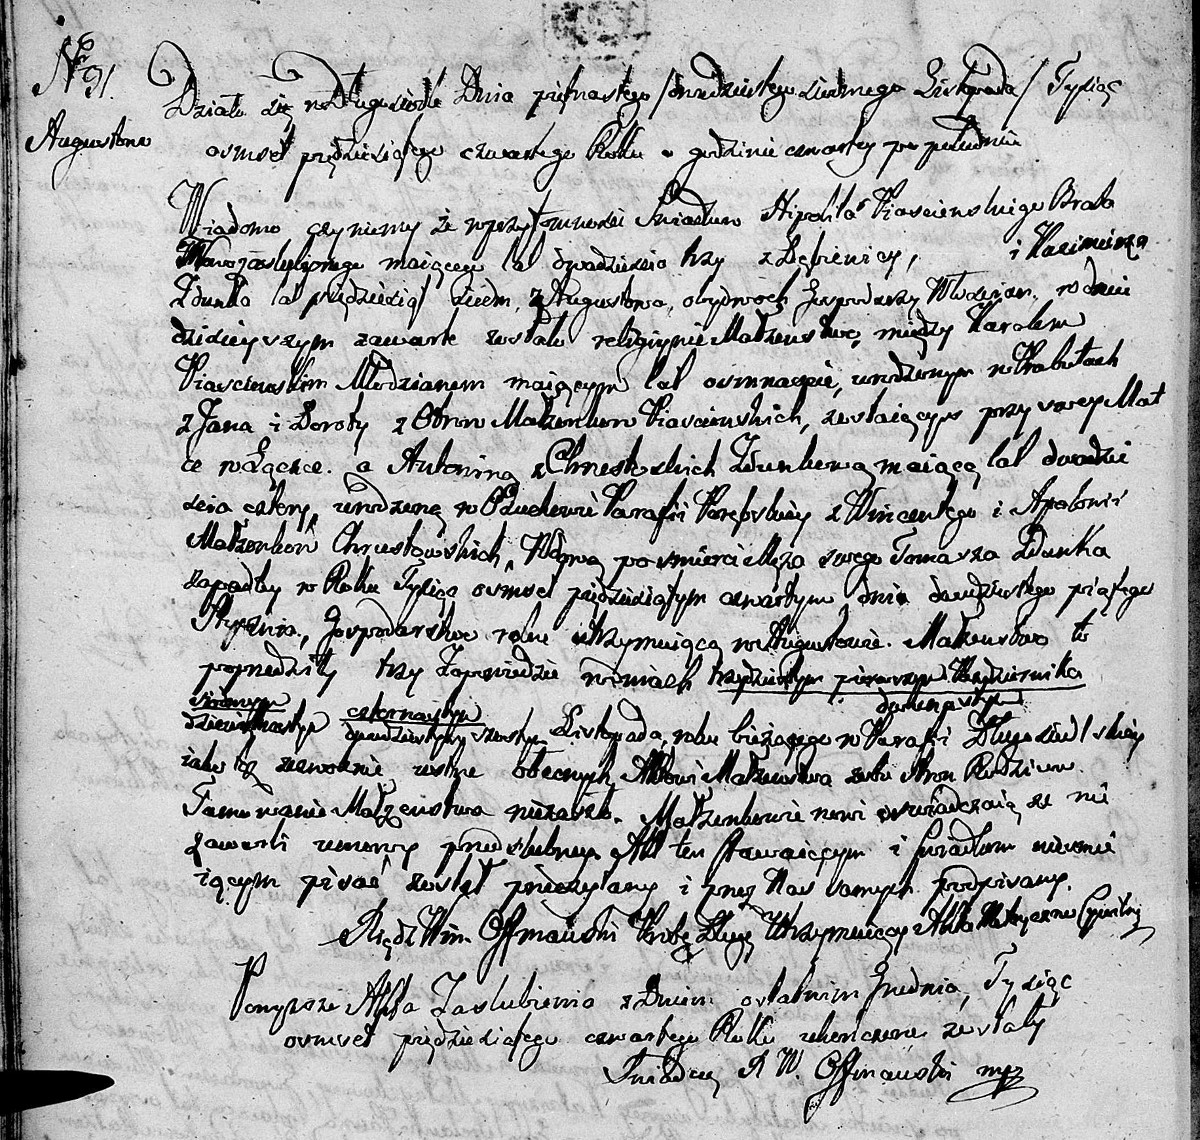 N° 91.
Augustowo
Działo się w Długosiodle Dnia piętnastego /dwudziestego siódmego Listopada/ Tysiąc
osmset pięćdziesiątego czwartego Roku o godzinie czwartey po południu
Wiadomo czyniemy że w przytomności Świadków Hipolita Piascienskiego Brata
Nowozaślubionego maiącego lat dwadzieścia trzy z i Kazimierza
Zdunka lat pięćdziesiąt siedm, z Augustowa, obydwóch Gospodarzy Włościan, w dniu
dzisieyszym zawarte zostało religiynie Małżeństwo, między Karolem
Piascienskim Młodzianem maiącym lat osmnaście, urodzonym w
z Jana i Doroty z Małżonków Piascienskich, zostaiącym przy swey Mat
ce w Łączce. a Antoniną z Chrostowskich Zdunkową maiącą lat dwadzie
ścia cztery, urodzoną w Parafii z Wincentego i Apolonii
Małżonków Chrustowskich, Wdową po śmierci Męża swego Tomasza Zdunka
zaszłey w Roku Tysiąc osmset pięćdziesiątym czwartym dnia dwudziestego piątego
Stycznia, Gospodarstwo rolne utrzymuiącą w Augustowie. Małżeństwo to
poprzedziły trzy Zapowiedzie w dniach trzydziestym pierwszym Października
siódmym czternastym dwunastym
dziewiętnastym dwudziestym szóstym Listopada, roku bieżącego w Parafii Długosiedlskiey
iako też zezwolenie ustne obecnych Aktowi Małżeństwa ze stron Rodziców
Tamowanie Małżeństwa niezaszło. Małżonkowie nowi oświadczaią że nie
zawarli umowy przedślubney. Akt ten stawaiącym i Świadkom nieumie
iącym pisać został przeczytany i przez Nas samych podpisany.
Xiądz Win. Offmański Prob. Długo. Utrzymuiący Akta Stanu Cywilny
Powyższe Akta Zaślubienia z Dniem ostatnim Grudnia, Tysiąc
osmset pięćdziesiątego czwartego Roku ukończone zostały
Świadczę X W. Offmański mpr